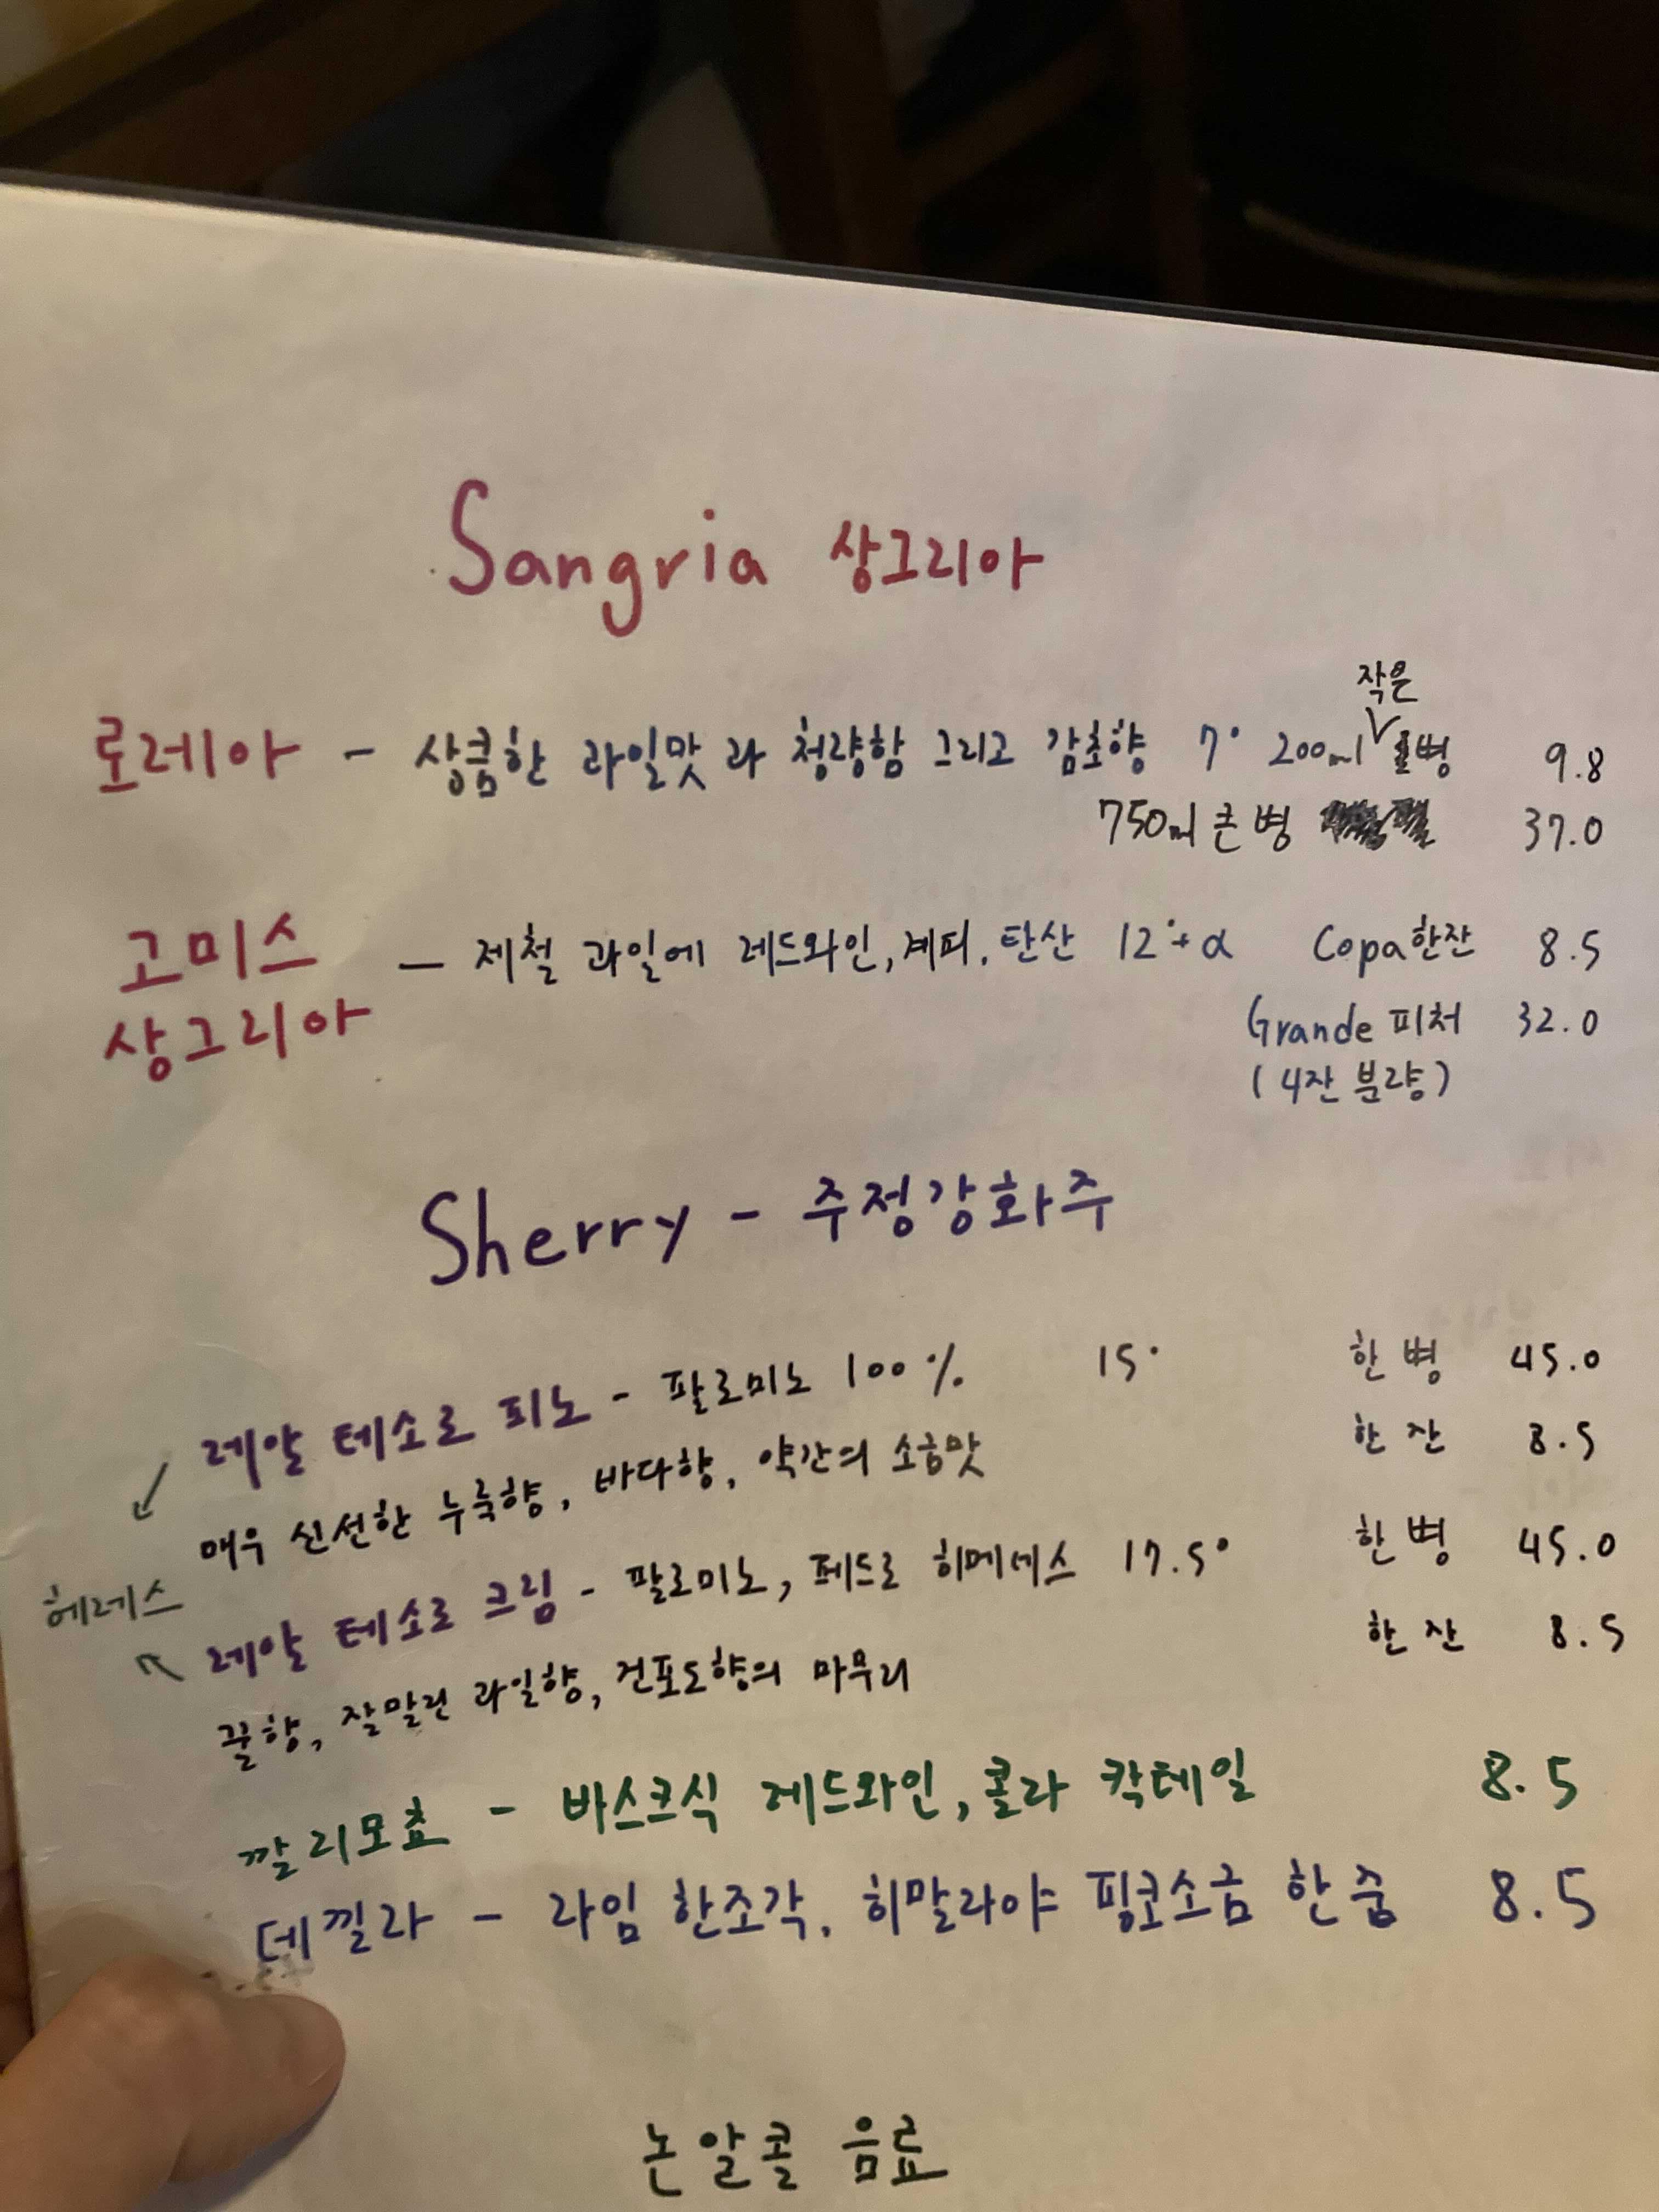 Sangria 상그리아
작은
로레아 - 상큼한 과일맛과 청량함 그리고 감초향 7° 200ml 병 9.8
750ml 큰병 37.0
고미스 - 제철 과일에 레드와인, 계피, 탄산 12°+α Copa 한잔 8.5
상그리아 Grande 피처 32.0
(4잔 분량)
Sherry - 주정강화주
레알 테소로 피노 - 팔로미노 100% 15° 한병 45.0
매우 신선한 누룩향, 바다향, 약간의 소금맛 한잔 8.5
헤레스
레알 테소로 크림 - 팔로미노, 페드로 히메네스 17.5° 한병 45.0
꿀향, 잘말린 과일향, 건포도향의 마무리 한잔 8.5
깔리모쵸 - 바스크식 레드와인, 콜라 칵테일 8.5
데낄라 - 라임 한조각, 히말라야 핑크소금 한줌 8.5
논알콜 음료